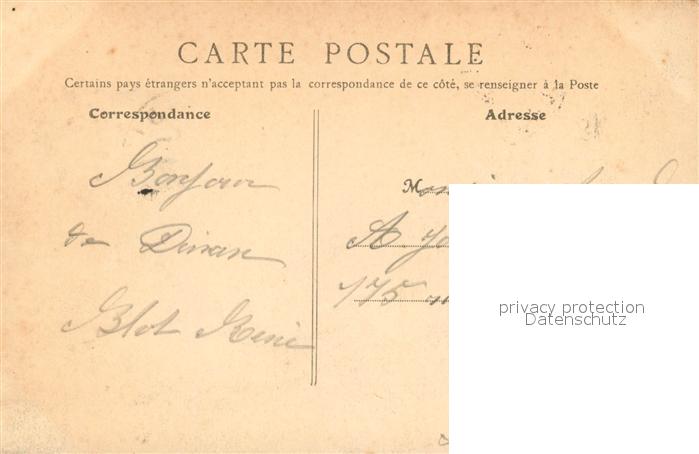 CARTE POSTALE
Certains pays étrangers n'acceptant pas la correspondance de ce côté, se renseigner à la Poste
Correspondance
Adresse
Bonjour
de Dinan
Blot René
M
A
175
privacy protection
Datenschutz